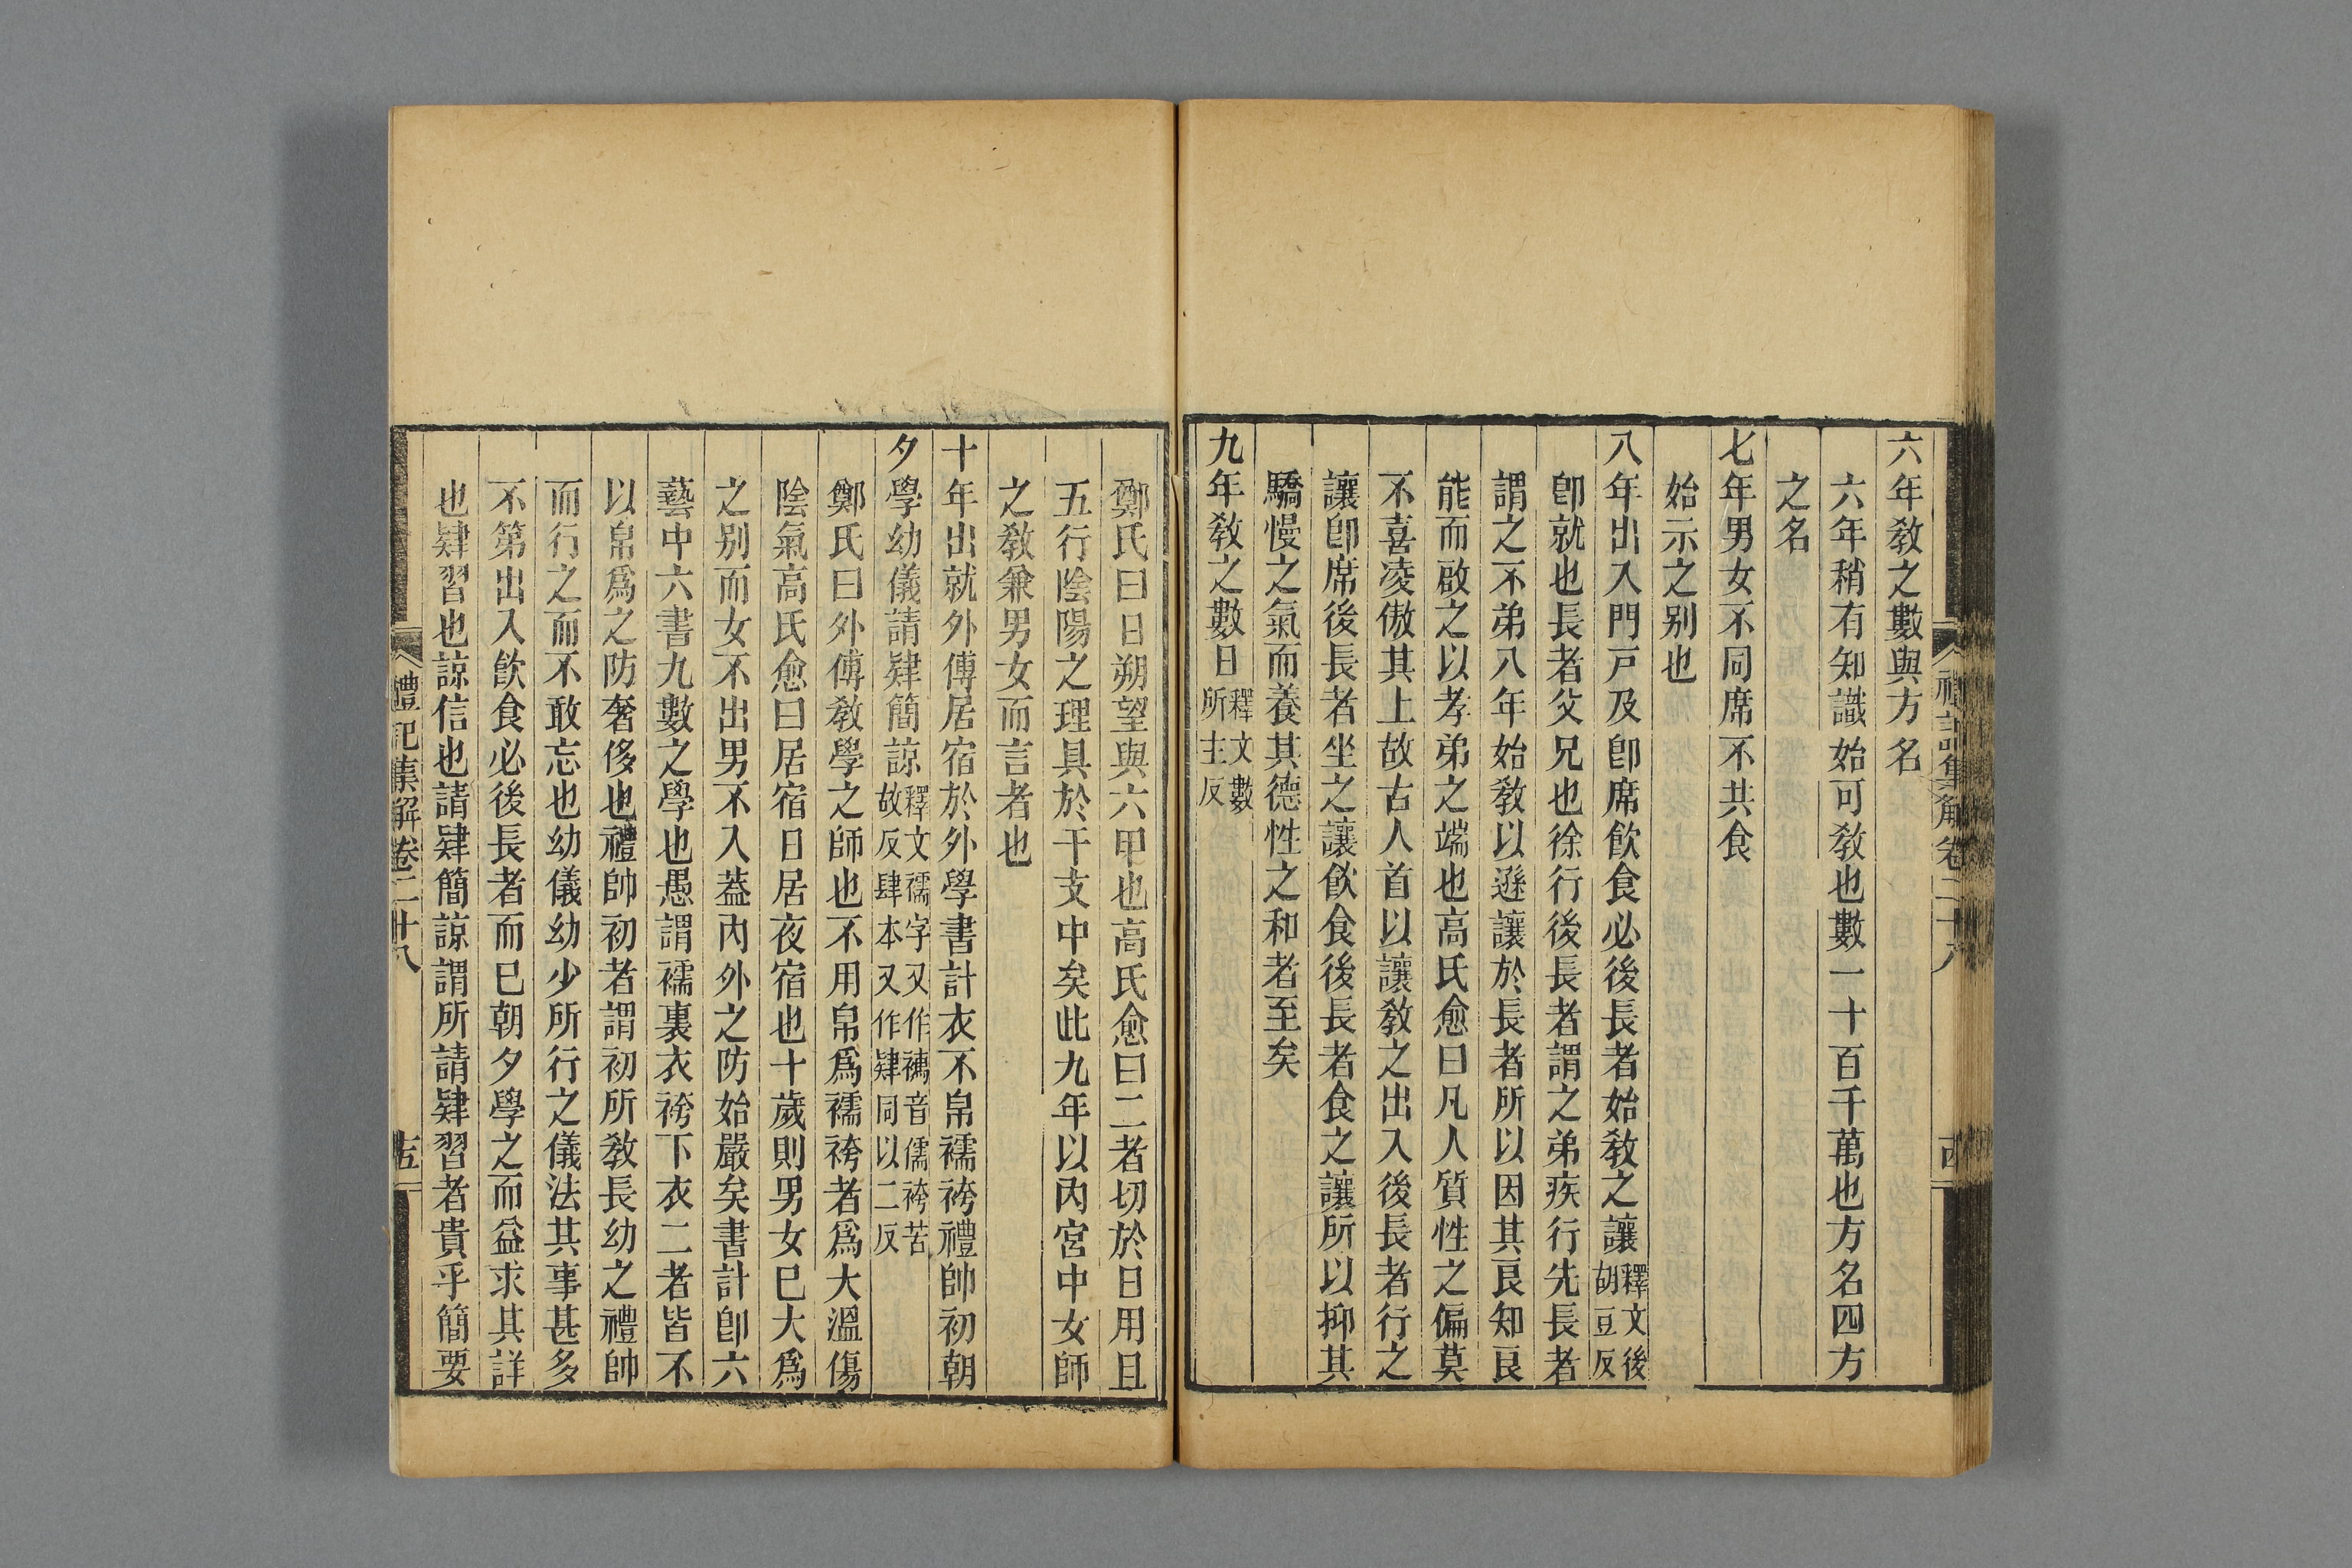 六年敎之數與方名
六年稍有知識始可敎也數一十百千萬也方名四方
之名
七年男女不同席不共食
始示之别也
八年出入門戸及卽席飮食必後長者始敎之讓釋文後胡豆反
卽就也長者父兄也徐行後長者謂之弟疾行先長者
謂之不弟八年始敎以遜讓於長者所以因其良知良
能而啟之以孝弟之端也高氏愈曰凡人質性之偏莫
不喜凌傲其上故古人首以讓敎之出入後長者行之
讓卽席後長者坐之讓飮食後長者食之讓所以抑其
驕慢之氣而養其德性之和者至矣
九年敎之數日釋文數所主反
鄭氏曰日朔望與六甲也高氏愈曰二者切於日用且
五行陰陽之理具於干支中矣此九年以内宮中女師
之敎兼男女而言者也
十年出就外傅居宿於外學書計衣不帛襦袴禮帥初朝
夕學幼儀請肄簡諒釋文襦字又作襦音儒袴苦故反肆本又作肄同以二反
鄭氏曰外傅敎學之師也不用帛爲襦袴者爲大溫傷
陰氣高氏愈曰居宿日居夜宿也十歲則男女巳大爲
之别而女不出男不入葢内外之防始嚴矣書計卽六
藝中六書九數之學也愚謂襦裏衣袴下衣二者皆不
以帛爲之防奢侈也禮帥初者謂初所敎長幼之禮帥
而行之而不敢忘也幼儀幼少所行之儀法其事甚多
不第出入飮食必後長者而巳朝夕學之而益求其詳
也肄習也諒信也請肄簡諒謂所請肄習者貴乎簡要
禮記集解卷二十八